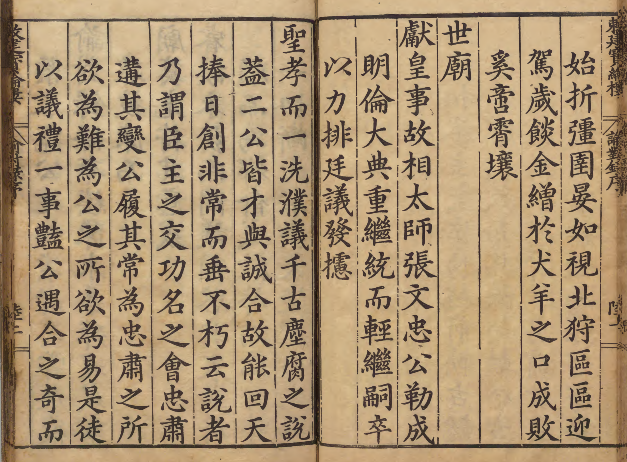 始折彊圉晏如視北狩區區迎
駕歲餤金繒於犬羊之口成敗
奚啻霄壤
世廟
獻皇事故相太師張文忠公勒成
明倫大典重繼統而輕繼嗣卒
以力排廷議發攄
聖孝而一洗濮議千古塵腐之説
葢二公皆才與誠合故能回天
捧日創非常而垂不朽云説者
乃謂臣主之交功名之會忠肅
遘其變公履其常為忠肅之所
欲為難為公之所欲為易是徒
以議禮一事豔公遇合之奇而